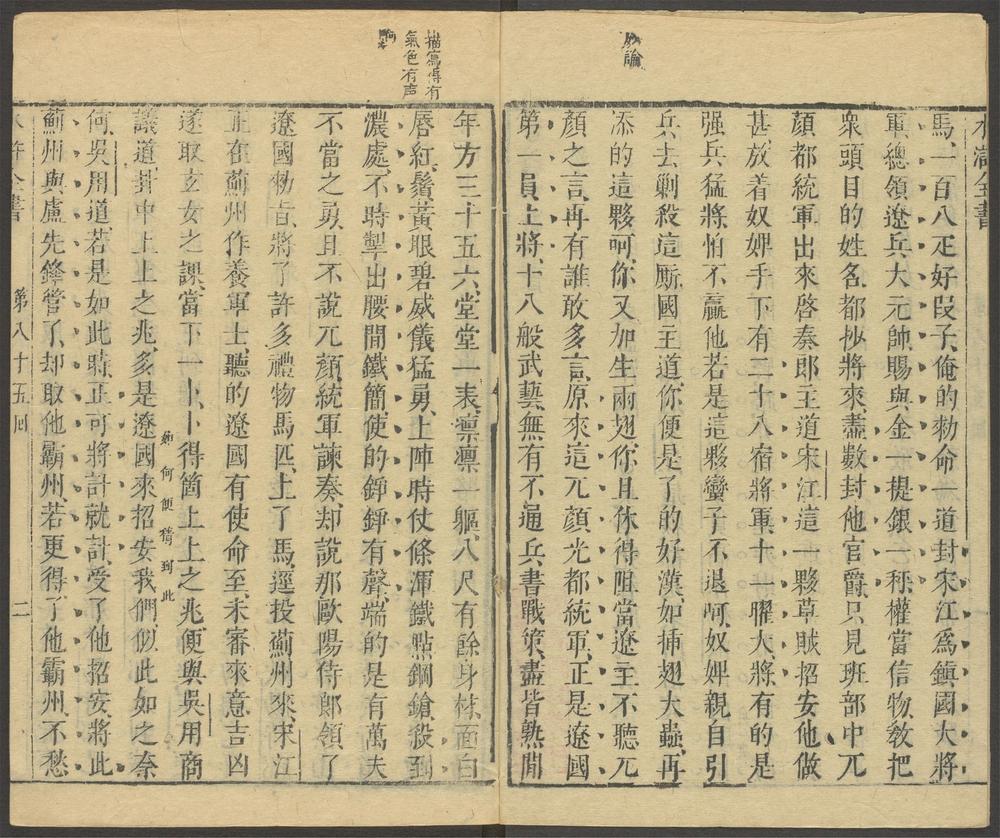 妙論
水滸全書
馬、一百八疋好段子、俺的勑命一道封宋江爲鎮國大將
軍、總領遼兵大元帥、賜與金一提、銀一秤、權當信物、教把
衆頭目的姓名、都抄將來、盡數封他官爵、只見班部中兀
顏都統軍出來啓奏郎主道、宋江這一夥草賊、招安他做
甚、放着奴婢手下有二十八宿將軍、十一曜大將、有的是
强兵猛將、怕不贏他、若是這夥蠻子不退呵、奴婢親自引
兵去剿殺這厮、國主道、你便是了的好漢、如插翅大蟲、再
添的這夥呵、你又加生兩翅、你且休得阻當、遼主不聽兀
顏之言、再有誰敢多言、原來這兀顏光都統軍、正是遼國
第一員上將、十八般武藝、無有不通、兵書戰策、盡皆熟閒
描寫得有
氣色有声
年方三十五六、堂堂一表、凛凛一軀、八尺有餘身材、面白
唇紅、鬚黃眼碧、威儀猛勇、上陣時仗條渾鐵點鋼鎗、殺到
濃處、不時掣出腰間鐵簡、使的錚錚有聲、端的是有萬夫
不當之勇、且不說兀顏統軍諫奏、却說那歐陽侍郎領了
遼國勑旨、將了許多禮物馬匹、上了馬、逕投薊州來、宋江
正在薊州作養軍士、聽的遼國有使命至、未審來意吉凶
遂取玄女之課、當下一卜、卜得箇上上之兆、便與吳用商
議道、卦中上上之兆、多是遼國來招安我們、似此如之奈
何、吳用道、若是如此時、正可將計就計、受了他招安、將此
薊州與盧先鋒管了、却取他霸州、若更得了他霸州、不愁
水滸全書
第八十五回
二